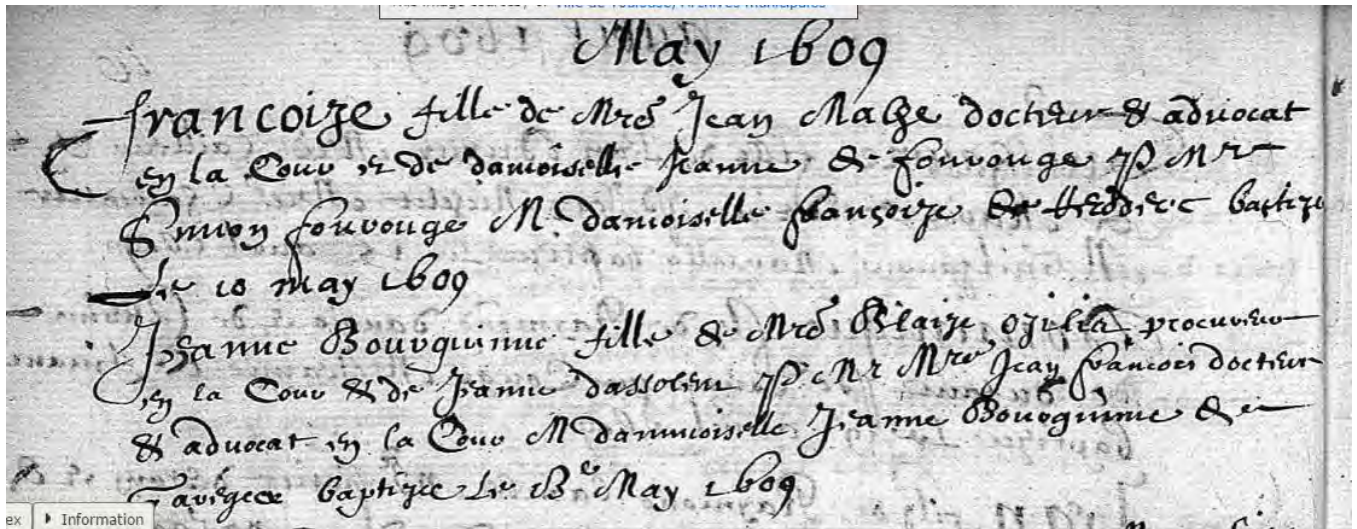 May 1609
francoize fille de Mre Jean Malhe docteur & advocat
en la Cour et de damoiselle Jeanne de fourouge P Mr
Simon fourouge M. damoiselle françoize de baptize
le 10 may 1609
Jeanne Bourguinne fille de Mre Blaize procureur
en la Cour & de Jeanne dassolent P. Mr Mre Jean françois docteur
& advocat en la Cour M damoiselle Jeanne Bourguinne de
baptizee le May 1609
Information